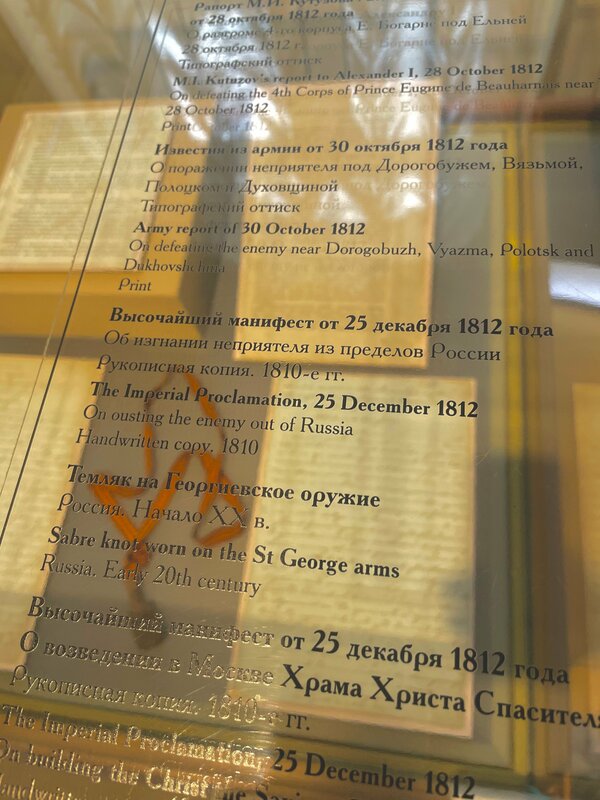 Рапорт М.И. Кутузова
от 28 октября 1812 года
О разгроме 4-го корпуса Е. Богарне под Ельней
28 октября 1812 года
Типографский оттиск
M.I. Kutuzov's report to Alexander I, 28 October 1812
On defeating the 4th Corps of Prince Eugine de Beauharnais near
28 October 1812
Print
Известия из армии от 30 октября 1812 года
О поражении неприятеля под Дорогобужем, Вязьмой,
Полоцком и Духовщиной
Типографский оттиск
Army report of 30 October 1812
On defeating the enemy near Dorogobuzh, Vyazma, Polotsk and
Dukhovshchina
Print
Высочайший манифест от 25 декабря 1812 года
Об изгнании неприятеля из пределов России
Рукописная копия. 1810-е гг.
The Imperial Proclamation, 25 December 1812
On ousting the enemy out of Russia
Handwritten copy. 1810
Темляк на Георгиевское оружие
Россия. Начало XX в.
Sabre knot worn on the St George arms
Russia. Early 20th century
Высочайший манифест от 25 декабря 1812 года
О возведении в Москве Храма Христа Спасителя
Рукописная копия. 1810-е гг.
The Imperial Proclamation, 25 December 1812
On building the Christ the
Handwritten